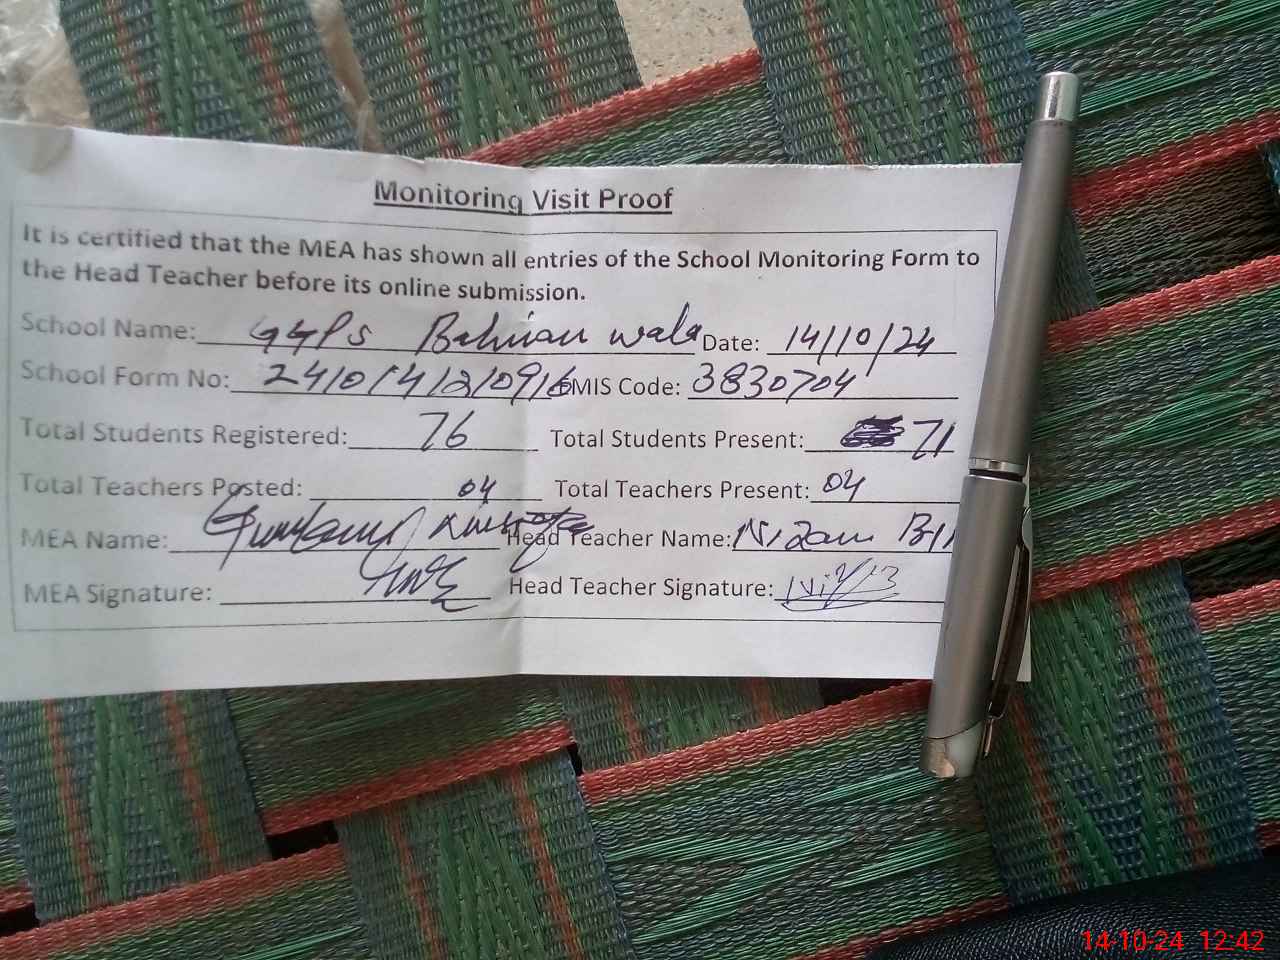 Monitoring Visit Proof
It is certified that the MEA has shown all entries of the School Monitoring Form to
the Head Teacher before its online submission.
School Name: GGPS Bahnian wala Date: 14/10/24
School Form No: 2410141210916 EMIS Code: 3830704
Total Students Registered: 76 Total Students Present: 71
Total Teachers Posted: 04 Total Teachers Present: 04
MEA Name: Head Teacher Name: Nizam
MEA Signature: Head Teacher Signature:
14-10-24 12:42